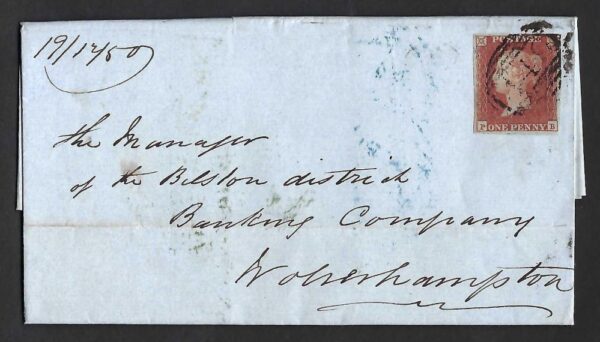 19/12/50
POSTAGE
P ONE PENNY B
the Manager
of the Bilston district
Banking Company
Wolverhampton